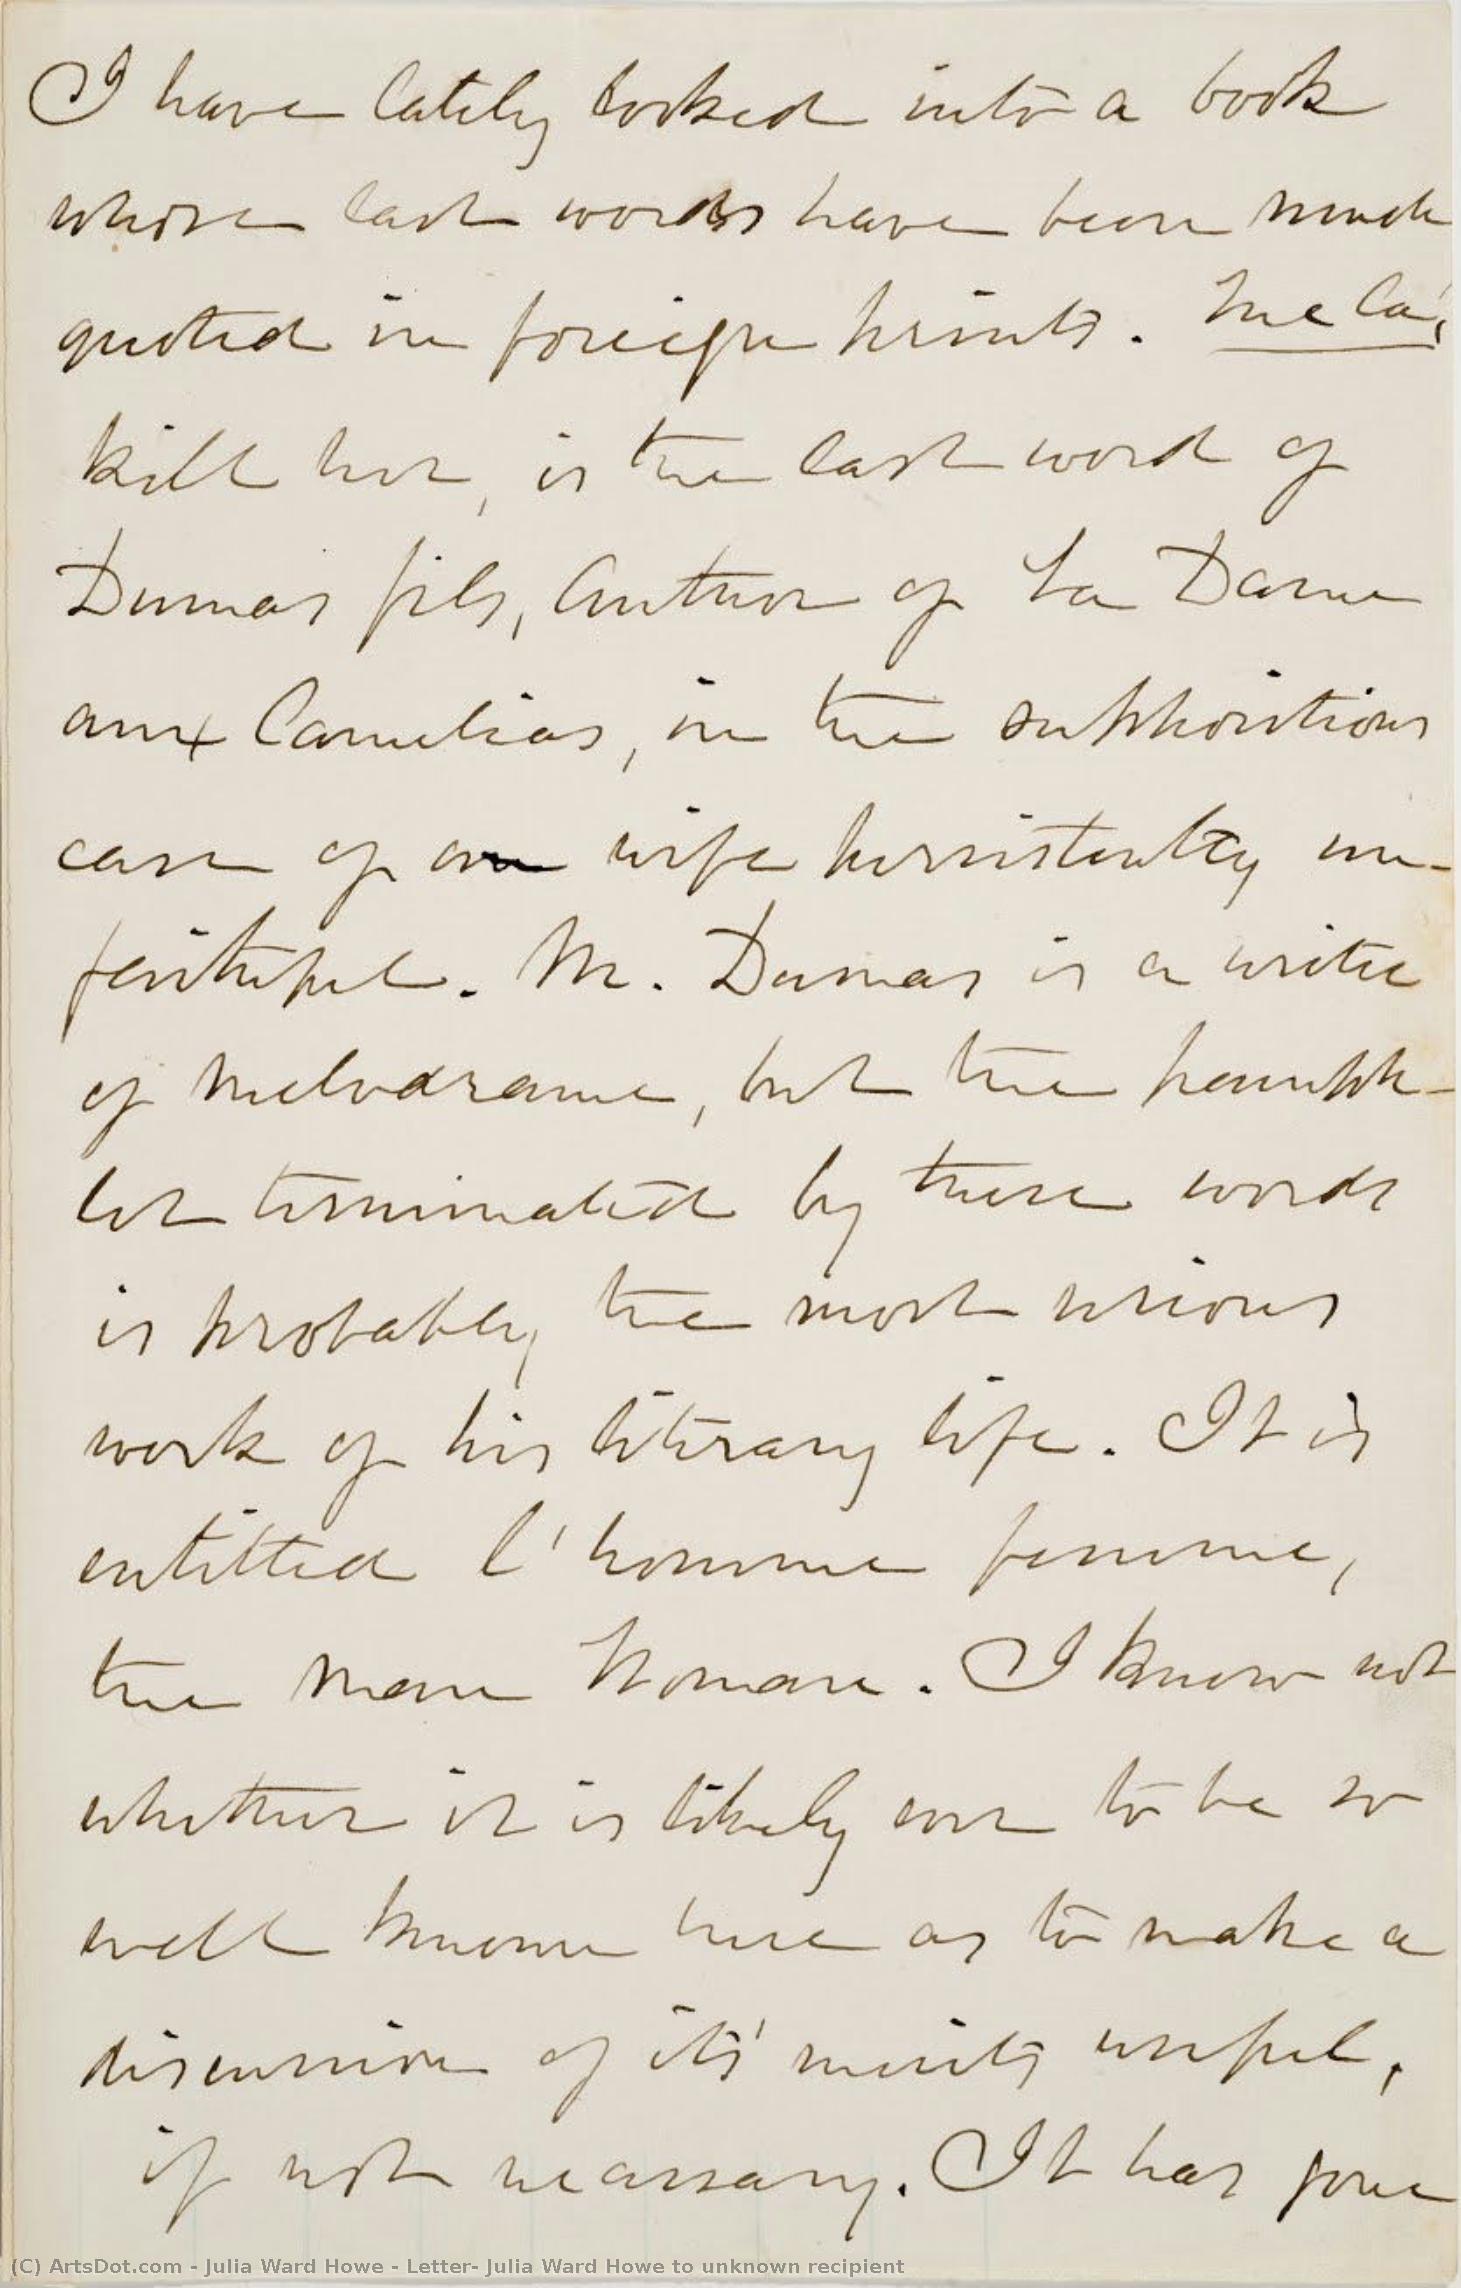 I have lately looked into a book
whose last words have been much
quoted in foreign prints. Tue la,
kill her, is the last word of
Dumas fils, Author of La Dame
aux Camelias, in the supposititious
case of one wife persistently un-
faithful. M. Dumas is a writer
of melodrame, but the pamph-
let terminated by these words
is probably the most serious
work of his literary life. It is
entitled l'homme femme,
the man Woman. I know not
whether it is likely ever to be so
well known here as to make a
discussion of its' merits useful,
if not necessary. It has gone
(C) ArtsDot.com - Julia Ward Howe - Letter- Julia Ward Howe to unknown recipient